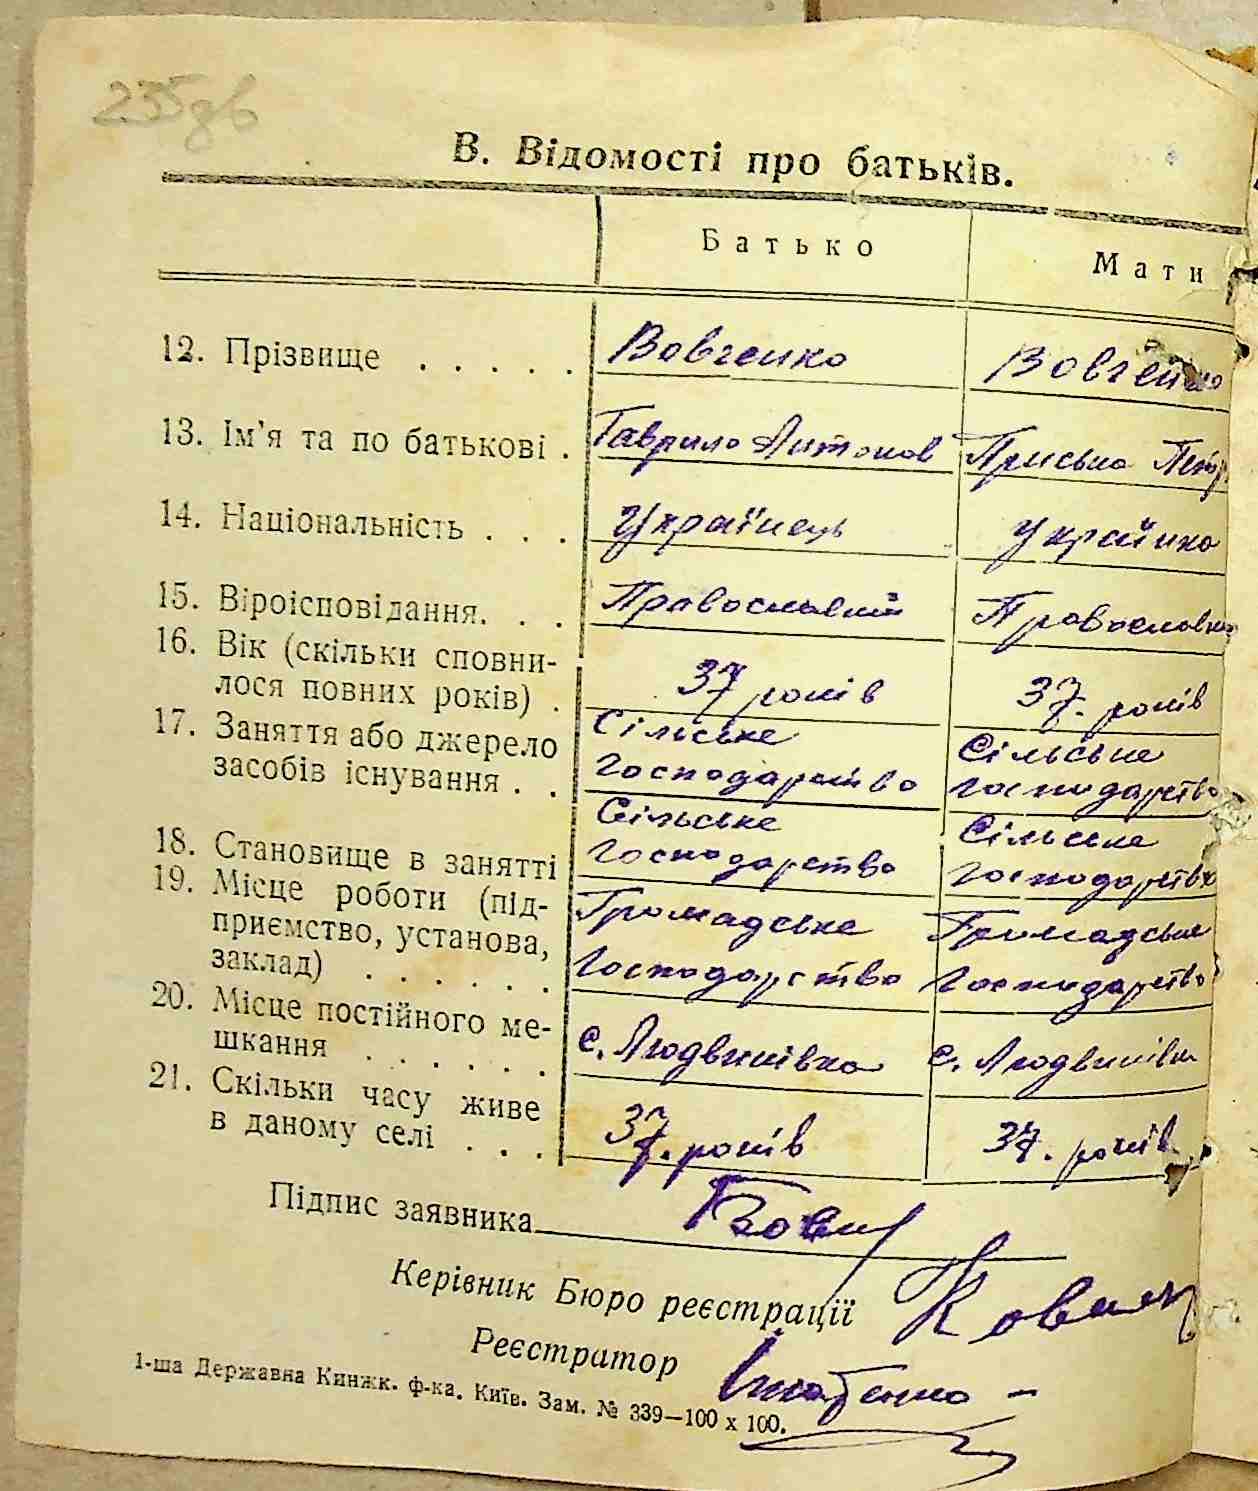 235зв
В. Відомості про батьків.
Батько Мати
12. Прізвище . . . . . Вовченко Вовченко
13. Ім'я та по батькові . Гаврило Антонов Приська Петр
14. Національність . . . Українець Українка
15. Віроісповідання. . . Православний Православн
16. Вік (скільки сповни-
лося повних років) . 37 років 37. років
17. Заняття або джерело Сільське Сільське
засобів існування . . господарство господарство
18. Становище в занятті Сільське господарство Сільське господарство
19. Місце роботи (під-
приємство, установа, Громадське Громадське
заклад) . . . . . . господарство господарство
20. Місце постійного ме-
шкання . . . . . . с. Людвинівка с. Людвинівка
21. Скільки часу живе
в даному селі . . . 37. років 37. років
Підпис заявника
Керівник Бюро реєстрації
Реєстратор
1-ша Державна Кинжк. ф-ка. Київ. Зам. № 339—100 x 100.